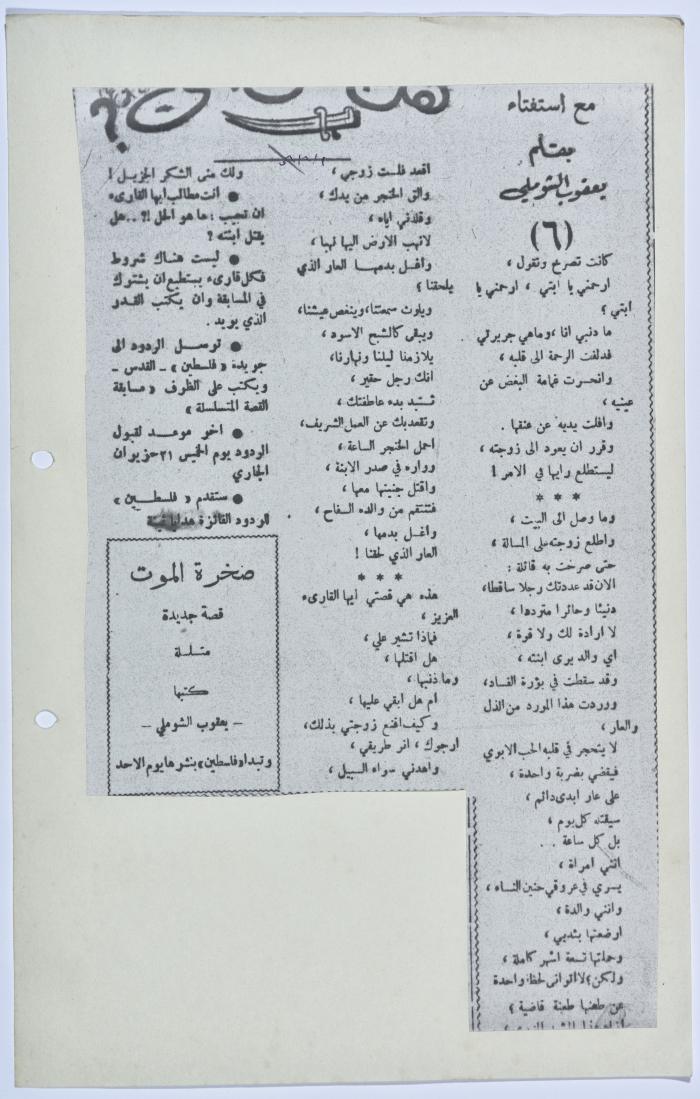 مع استفتاء
بقلم
يعقوب الشوملي
(٦)
كانت تصرخ وتقول ،
ارحمني يا ابتي ، ارحمني يا
ابتي ؟
ما ذنبي انا ، وماهي جريرتي
فدلفت الرحمة الى قلبه ،
وانحسرت غمامة البغض عن
عينيه ،
وافلت يديه عن عنقها .
وقرر ان يعود الى زوجته ،
ليستطلع رايها في الامر !
* * *
وما وصل الى البيت ،
واطلع زوجته على المسالة ،
حتى صرخت به قائلة :
الان قد عددتك رجلا ساقطا،
دنيئا وحائرا مترددا ،
لا ارادة لك ولا قوة ،
اي والد يرى ابنته ،
وقد سقطت في بؤرة الفساد،
ووردت هذا المورد من الذل
والعار ،
لا يتحجر في قلبه الحب الابوي
فيقضي بضربة واحدة ،
على عار ابدي دائم ،
سيقتله كل يوم ،
بل كل ساعة . .
انني امراة ،
يسري في عروقي حنين النساء ،
وانني والدة ،
ارضعتها بثديي ،
وحملتها تسعة اشهر كاملة ،
ولكن لا اتوانى لحظة واحدة
عن طعنها طعنة قاضية ؟
اقعد فلست زوجي ،
والق الخنجر من يدك ،
وقلدني اياه ،
لانهب الارض اليها نهبا ،
واغسل بدمها العار الذي
يلحقنا ؟
ويلوث سمعتنا، وينغص عيشنا،
ويبقى كالشبح الاسود ،
يلازمنا ليلنا ونهارنا،
انك رجل حقير ،
تستبد بده عاطفتك ،
وتقعدك عن العمل الشريف،
احمل الخنجر الساعة ،
وواره في صدر الابنة ،
واقتل جنينها معها ،
فتنتقم من والده السفاح ،
واغسل بدمها ،
العار الذي لحقنا !
* * *
هذه هي قصتي ايها القارىء
العزيز ،
فماذا تشير علي ،
هل اقتلها ،
وما ذنبها ،
ام هل ابقي عليها ،
وكيف اقنع زوجتي بذلك،
ارجوك ، انر طريقي ،
واهدني سواء السبيل ،
ولك مني الشكر الجزيل !
● انت مطالب ايها القارىء
ان تجيب : ما هو الحل !? .. هل
يقتل ابنته ?
● ليست هناك شروط
فكل قارىء يستطيع ان يشترك
في المسابقة وان يكتب القدر
الذي يريد .
● ترسل الردود الى
جريدة « فلسطين » - القدس -
ويكتب على الظرف « مسابقة
القصة المتسلسلة »
● اخر موعد لقبول
الردود يوم الخميس ٢١ حزيران
الجاري
● ستقدم « فلسطين »
للردود الفائزة هدايا
صخرة الموت
قصة جديدة
متسلسلة
كتبها
– يعقوب الشوملي –
وتبدا «فلسطين» بنشرها يوم الاحد